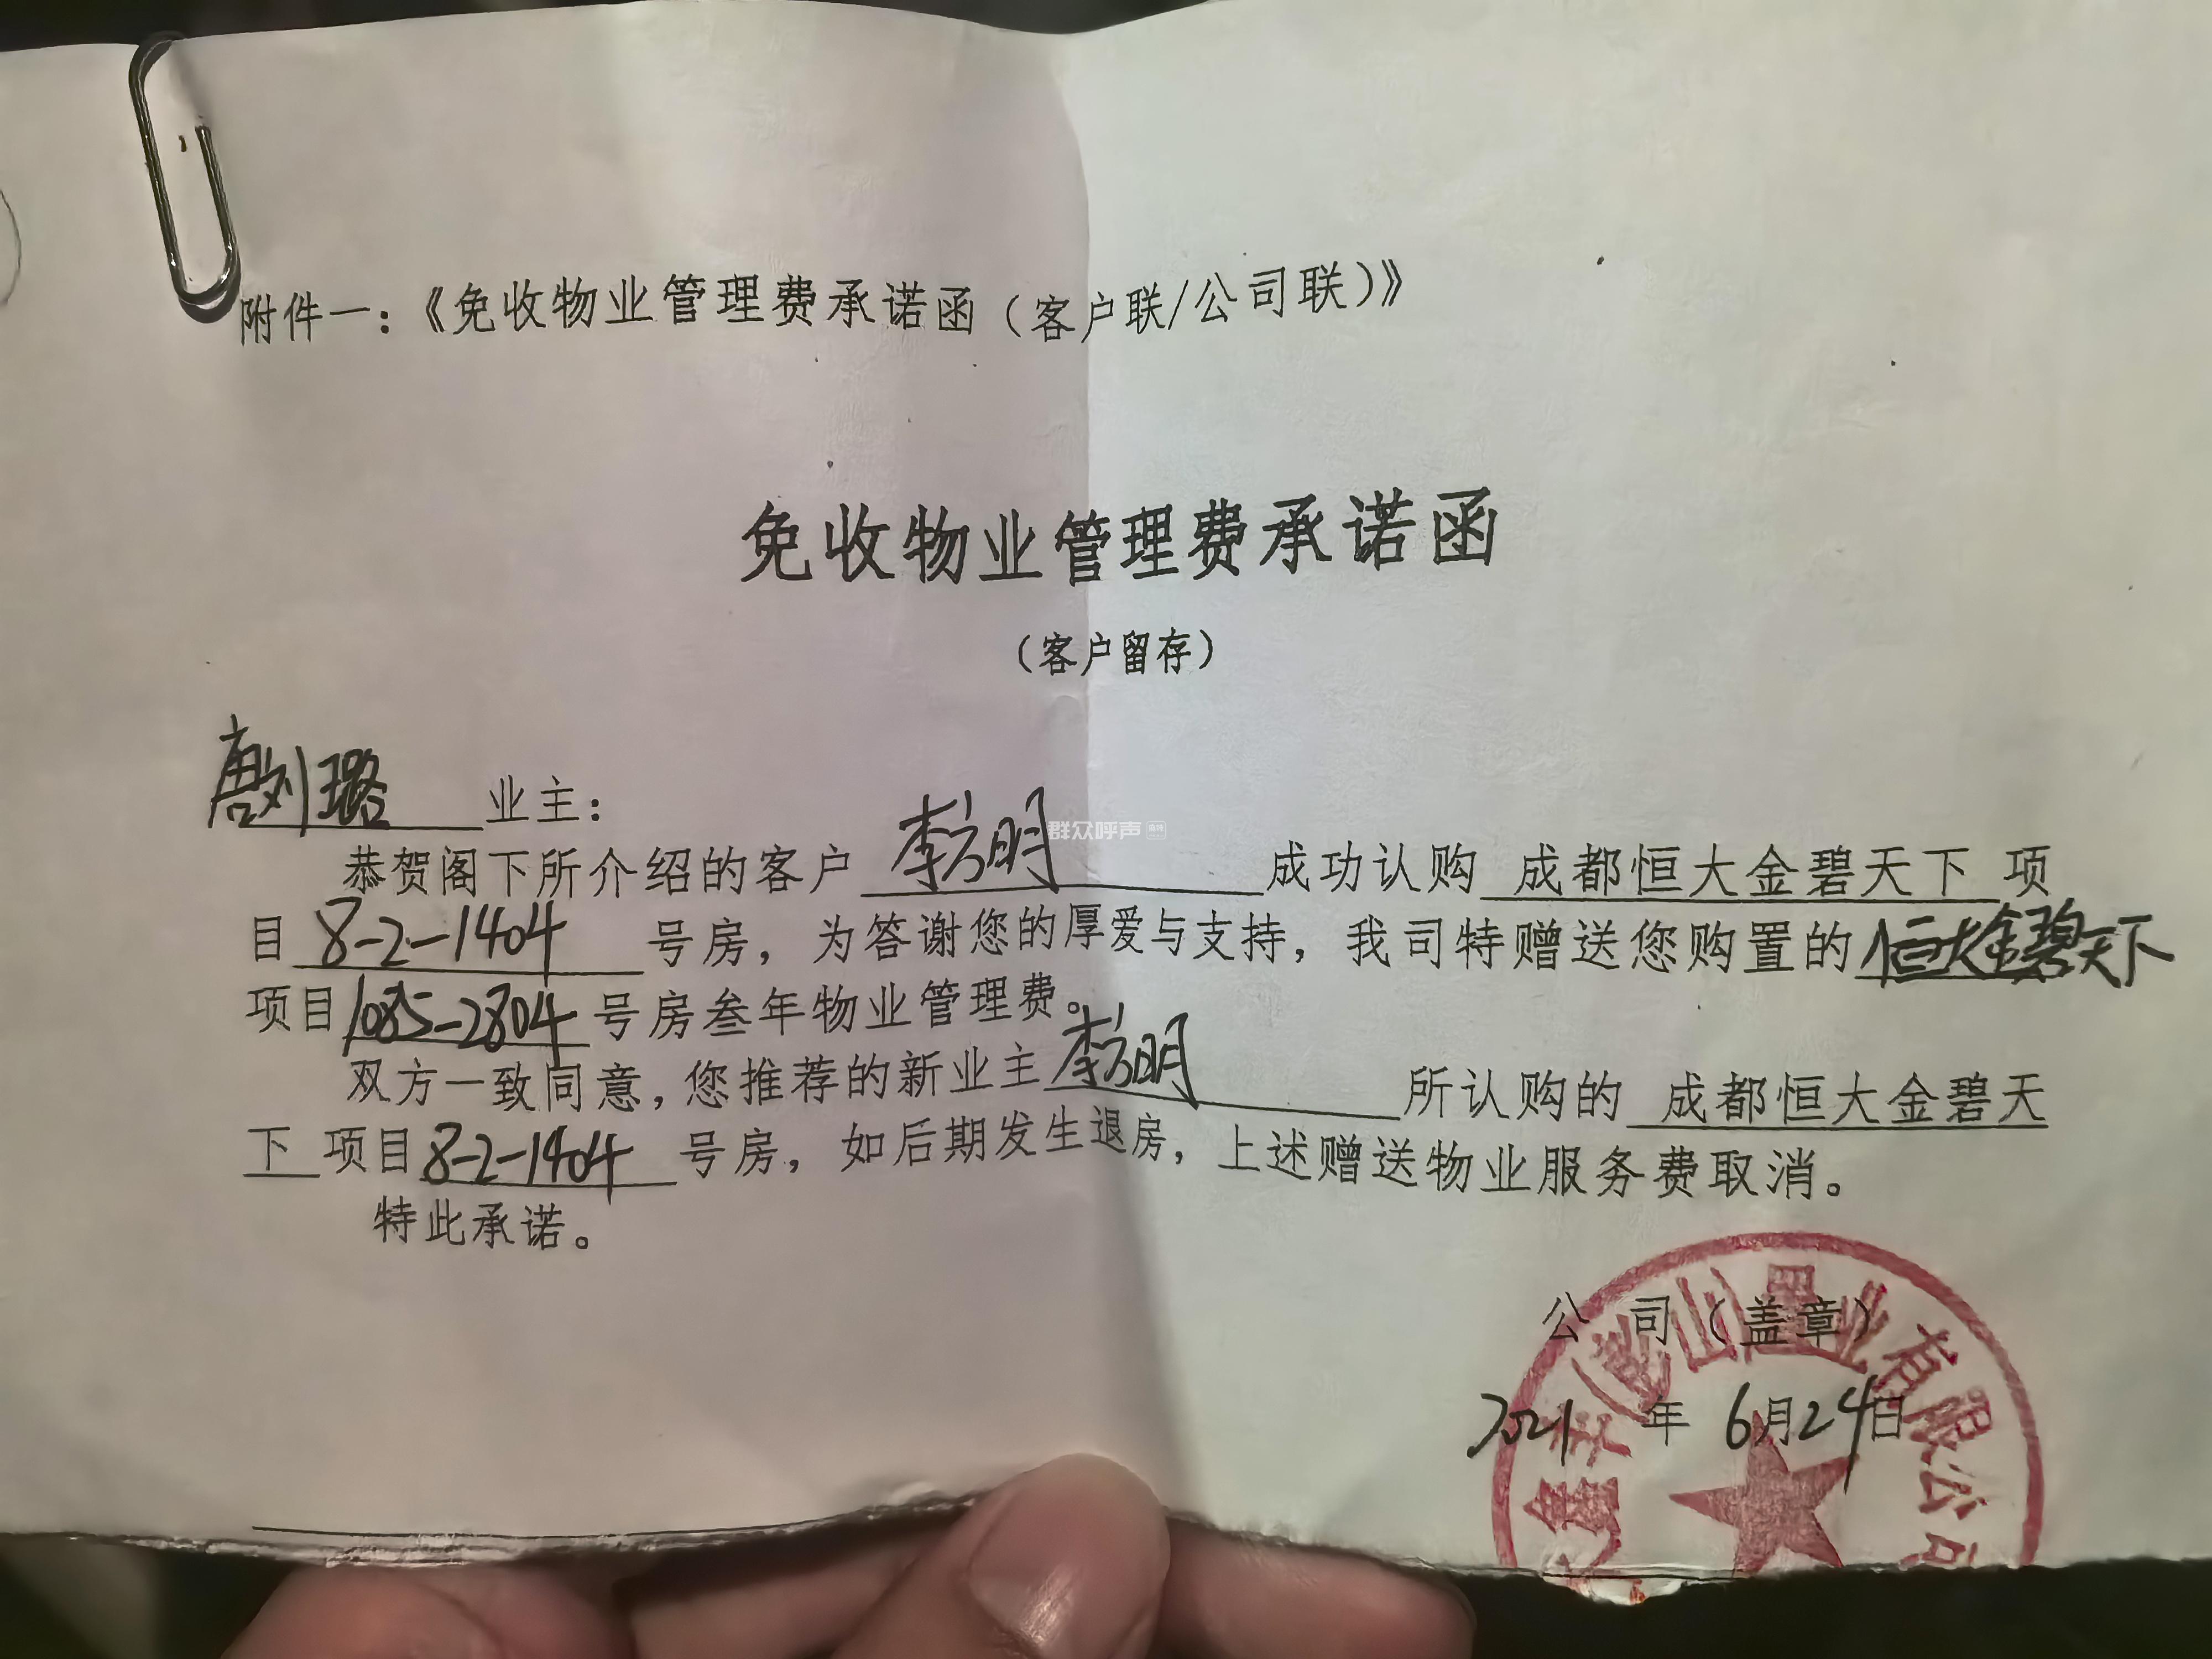 附件一：《免收物业管理费承诺函（客户联/公司联）》
免收物业管理费承诺函
（客户留存）
唐刘璐 业主：
恭贺阁下所介绍的客户 李方明 成功认购 成都恒大金碧天下 项
目 8-2-1404 号房，为答谢您的厚爱与支持，我司特赠送您购置的 恒大金碧天下
项目 1085-2804 号房叁年物业管理费。
双方一致同意，您推荐的新业主 李方明 所认购的 成都恒大金碧天
下 项目 8-2-1404 号房，如后期发生退房，上述赠送物业服务费取消。
特此承诺。
公 司（盖章）
2021 年 6月24日
山置业有限公司
群众呼声